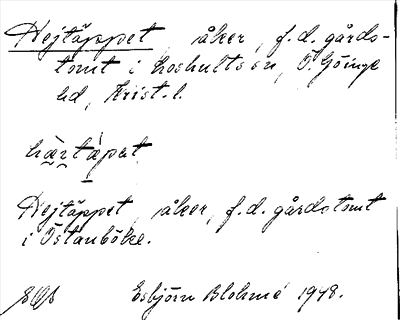 Hejtäppet åker, f.d. gårds-
tomt i Loshults sn, Ö. Göinge
hd, Krist. l.
Hejtäppet åker, f.d. gårdstomt
i Östanböke.
Esbjörn Blohmé 1948.